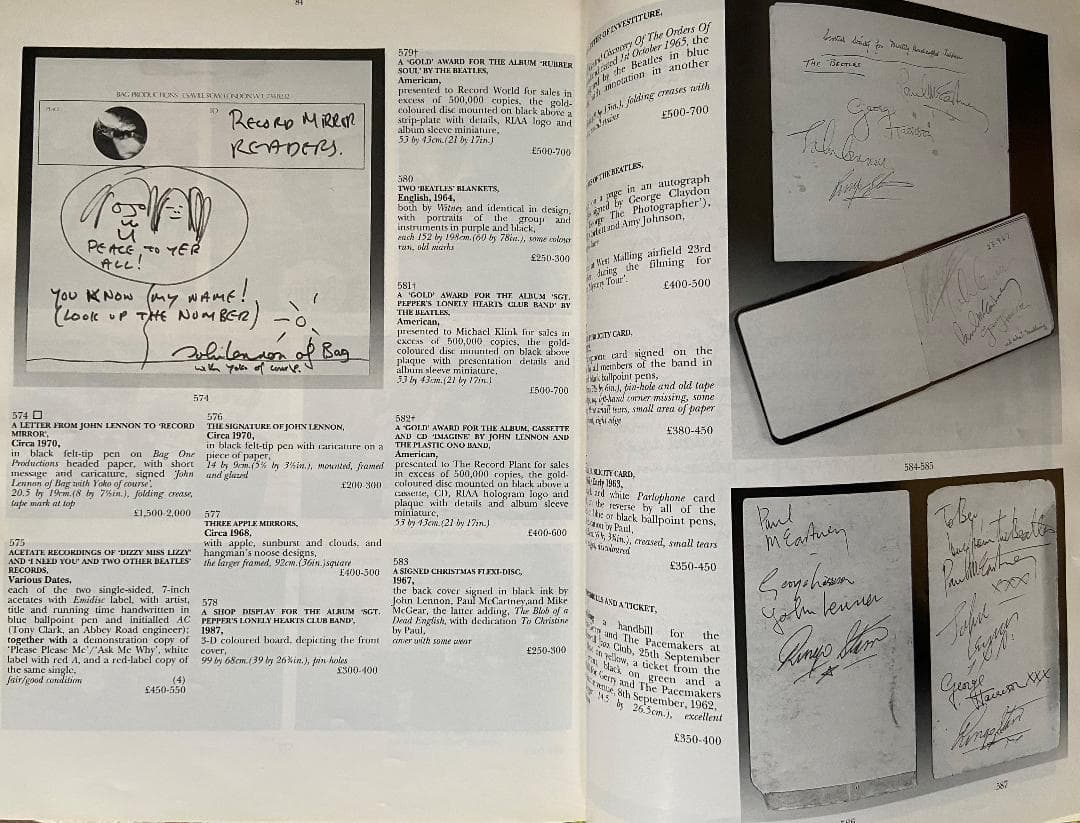 84
BAG PRODUCTIONS
TO
RECORD MIRROR
READERS.
PEACE TO YER
ALL!
YOU KNOW (MY NAME!
(LOOK UP THE NUMBER)
John Lennon of Bag
with Yoko of course.
574
574 □
A LETTER FROM JOHN LENNON TO 'RECORD
MIRROR',
Circa 1970,
in black felt-tip pen on Bag One
Productions headed paper, with short
message and caricature, signed 'John
Lennon of Bag with Yoko of course',
20.5 by 19cm.(8 by 7½in.), folding crease,
tape mark at top
£1,500-2,000
575
ACETATE RECORDINGS OF 'DIZZY MISS LIZZY'
AND 'I NEED YOU' AND TWO OTHER BEATLES'
RECORDS,
Various Dates,
each of the two single-sided, 7-inch
acetates with Emidisc label, with artist,
title and running time handwritten in
blue ballpoint pen and initialled AC
(Tony Clark, an Abbey Road engineer);
together with a demonstration copy of
'Please Please Me'/'Ask Me Why', white
label with red A, and a red-label copy of
the same single,
fair/good condition (4)
£450-550
576
THE SIGNATURE OF JOHN LENNON,
Circa 1970,
in black felt-tip pen with caricature on a
piece of paper,
14 by 9cm.(5½ by 3½in.), mounted, framed
and glazed
£200-300
577
THREE APPLE MIRRORS,
Circa 1968,
with apple, sunburst and clouds, and
hangman's noose designs,
the larger framed, 92cm.(36in.)square
£400-500
578
A SHOP DISPLAY FOR THE ALBUM 'SGT.
PEPPER'S LONELY HEARTS CLUB BAND',
1987,
3-D coloured board, depicting the front
cover,
99 by 68cm.(39 by 26¾in.), pin-holes
£300-400
579†
A 'GOLD' AWARD FOR THE ALBUM 'RUBBER
SOUL' BY THE BEATLES,
American,
presented to Record World for sales in
excess of 500,000 copies, the gold-
coloured disc mounted on black above a
strip-plate with details, RIAA logo and
album sleeve miniature,
53 by 43cm.(21 by 17in.)
£500-700
580
TWO 'BEATLES' BLANKETS,
English, 1964,
both by Witney and identical in design,
with portraits of the group and
instruments in purple and black,
each 152 by 198cm.(60 by 78in.), some colour
run, old marks
£250-300
581†
A 'GOLD' AWARD FOR THE ALBUM 'SGT.
PEPPER'S LONELY HEARTS CLUB BAND' BY
THE BEATLES,
American,
presented to Michael Klink for sales in
excess of 500,000 copies, the gold-
coloured disc mounted on black above
plaque with presentation details and
album sleeve miniature,
53 by 43cm.(21 by 17in.)
£500-700
582†
A 'GOLD' AWARD FOR THE ALBUM, CASSETTE
AND CD 'IMAGINE' BY JOHN LENNON AND
THE PLASTIC ONO BAND,
American,
presented to The Record Plant for sales
in excess of 500,000 copies, the gold-
coloured disc mounted on black above a
cassette, CD, RIAA hologram logo and
plaque with details and album sleeve
miniature,
53 by 43cm.(21 by 17in.)
£400-600
583
A SIGNED CHRISTMAS FLEXI-DISC,
1967,
the back cover signed in black ink by
John Lennon, Paul McCartney,and Mike
McGear, the latter adding, The Blob of a
Dead English, with dedication To Christine
by Paul,
cover with some wear
£250-300
OF INVESTITURE,
Chancery Of The Orders Of
dated 1st October 1965, the
by the Beatles in blue
annotation in another
folding creases with
£500-700
OF THE BEATLES,
a page in an autograph
signed by George Claydon
The Photographer'),
and Amy Johnson,
at West Malling airfield 23rd
during the filming for
Tour'.
£400-500
CARD,
card signed on the
all members of the band in
ballpoint pens,
pin-hole and old tape
left-hand corner missing, some
small tears, small area of paper
right edge
£380-450
CARD,
Early 1963,
and white Parlophone card
the reverse by all of the
blue or black ballpoint pens,
by Paul,
creased, small tears
£350-450
AND A TICKET,
a handbill for the
and The Pacemakers at
Club, 25th September
in yellow, a ticket from the
black on green and a
Gerry and The Pacemakers
8th September, 1962,
by 26.5cm.), excellent
£350-400
THE BEATLES
Paul McCartney
George
Harrison
John Lennon
Ringo Starr
Paul McCartney
George Harrison
584-585
Paul
McCartney
George Harrison
John Lennon
Ringo Starr
To Bev
love from the Beatles
Paul McCartney
XXX
John
Lennon
George
Harrison XXX
Ringo Starr
586
587